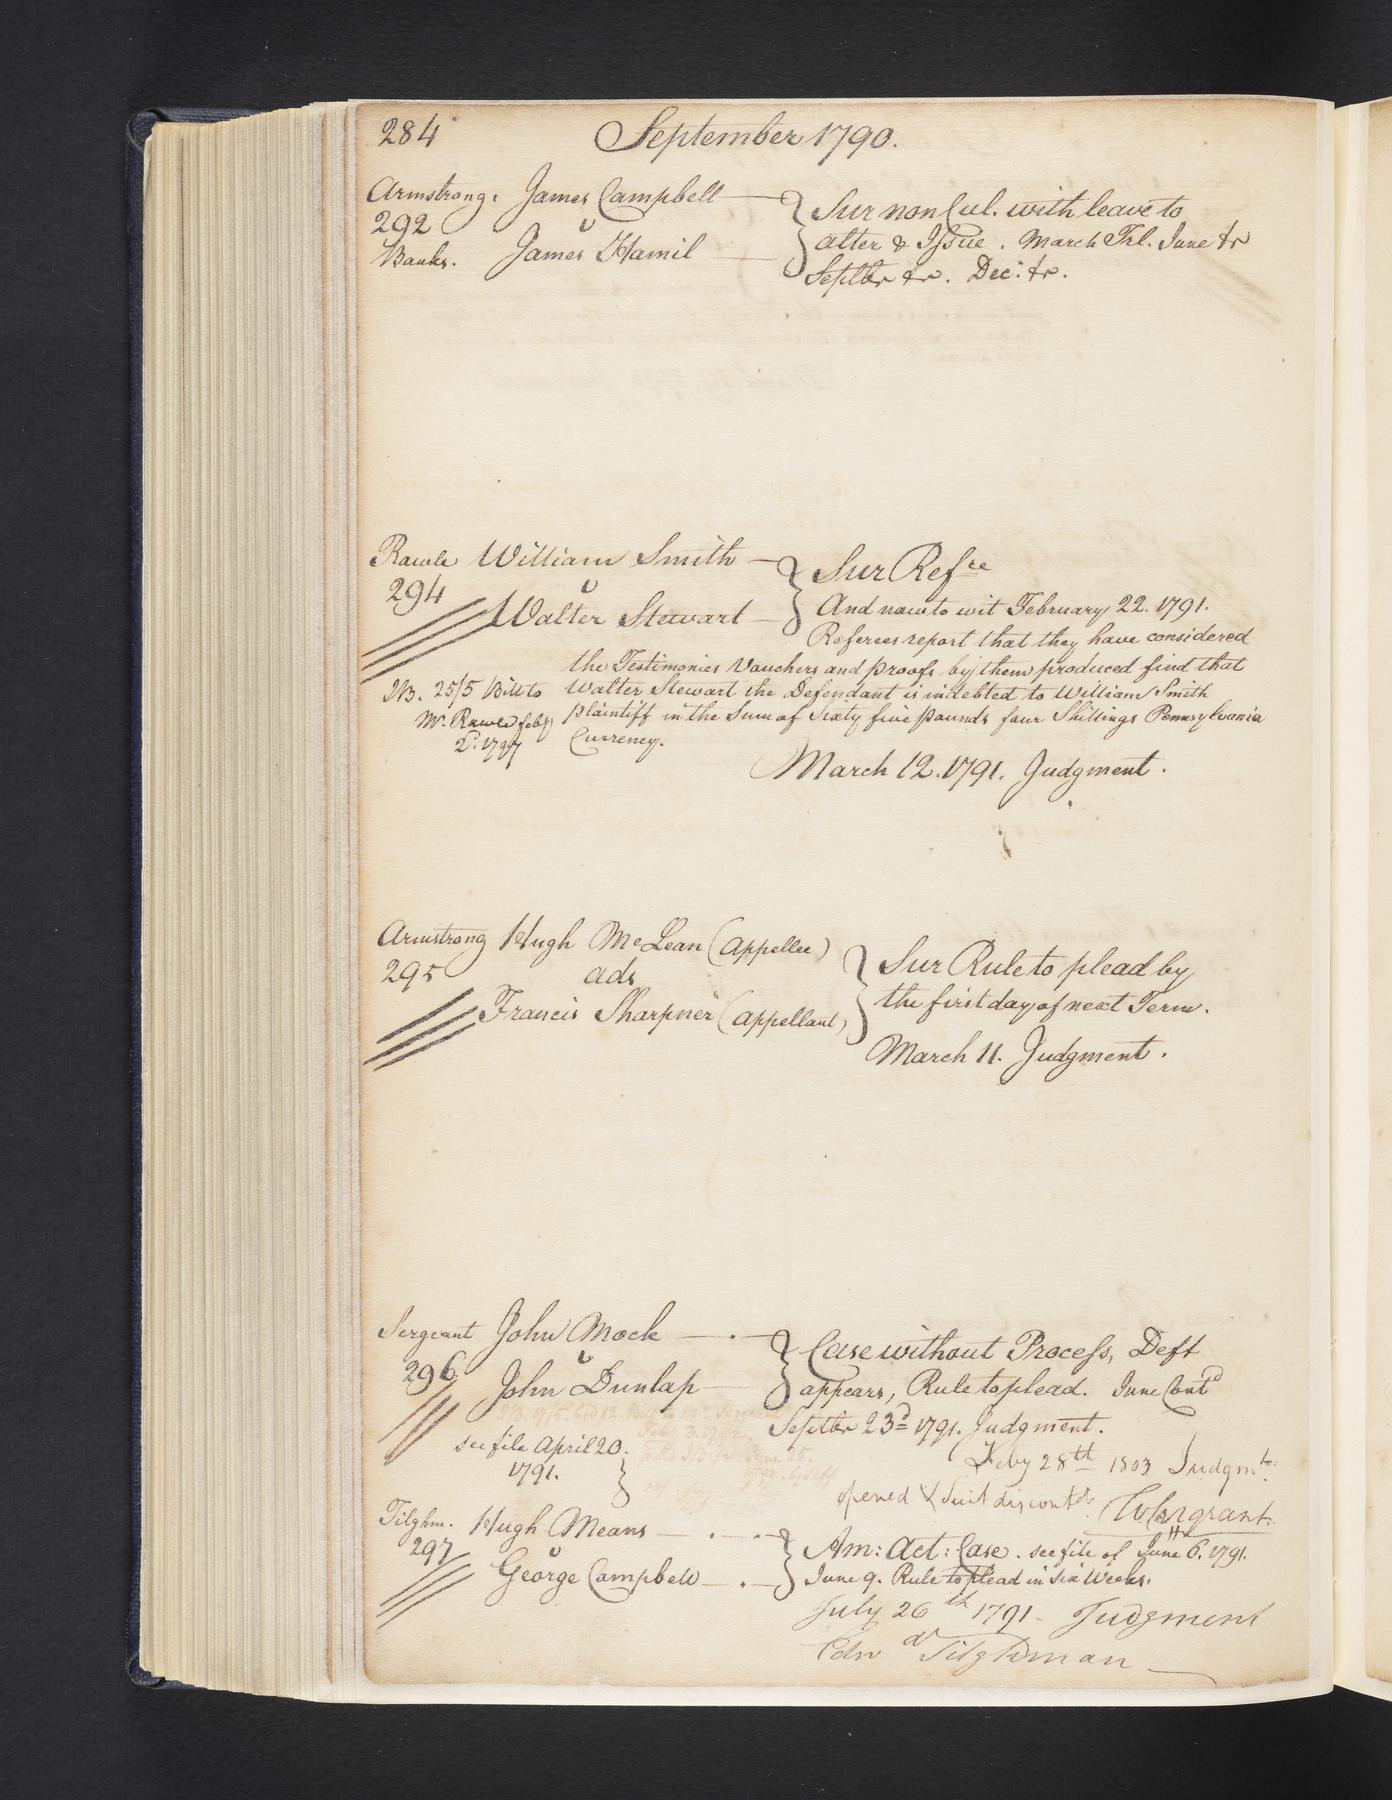 284 September 1790.
Armstrong. James Campbell
292 v
Banks. James Hamil
Sur non Cul. with leave to
alter & Issue. March Trl. June tr
Septbr tr. Dec: tr.
Rawle William Smith
294 v
Walter Stewart
Sur Ref.ce
And now to wit February 22. 1791.
Referees report that they have considered
the Testimonies Vouchers and proofs by them produced find that
Walter Stewart the Defendant is indebted to William Smith
plaintiff in the Sum of Sixty five pounds four Shillings Pennsylvania
Currency.
NB. 25/5 Bill to
Mr. Rawle feby
March 12. 1791. Judgment.
Armstrong Hugh McLean (appellee)
295 ads
Francis Sharpner (appellant)
Sur Rule to plead by
the first day of next Term.
March 11. Judgment.
Sergeant John Mock
296 v
John Dunlap
Case without Process, Deft
appears, Rule to plead. June Contd
Septbr 23d 1791. Judgment.
see file April 20.
1791.
Feby 28th 1803 Judgmt.
opened & Suit discontd.
Tilghm. Hugh Means
297 v
George Campbell
Am: Act: Case. see file of June 6. 1791.
June 9. Rule to plead in Six Weeks.
July 26th 1791 - Judgment
Edwd Tilghman